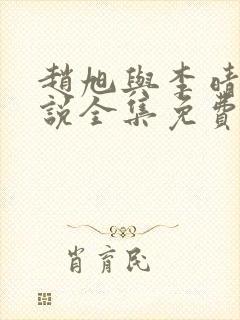 趙旭與李晴
說全集免費
肖育民